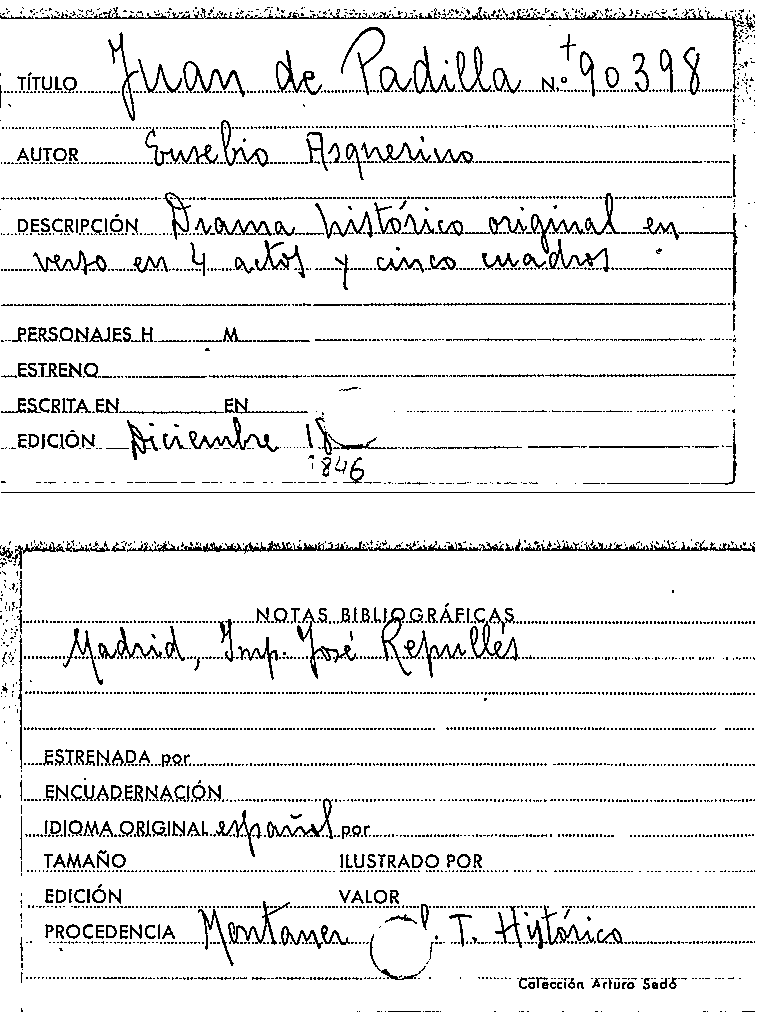 TÍTULO Juan de Padilla N.º + 90398
AUTOR Eusebio Asquerino
DESCRIPCIÓN Drama histórico original en
verso en 4 actos y cinco cuadros
PERSONAJES H M
ESTRENO
ESCRITA EN EN
EDICIÓN Diciembre 18
1846
NOTAS BIBLIOGRÁFICAS
Madrid, Imp. José Repullés
ESTRENADA por
ENCUADERNACIÓN
IDIOMA ORIGINAL español por
TAMAÑO ILUSTRADO POR
EDICIÓN VALOR
PROCEDENCIA Montaner T. Histórico
Colección Arturo Sedó